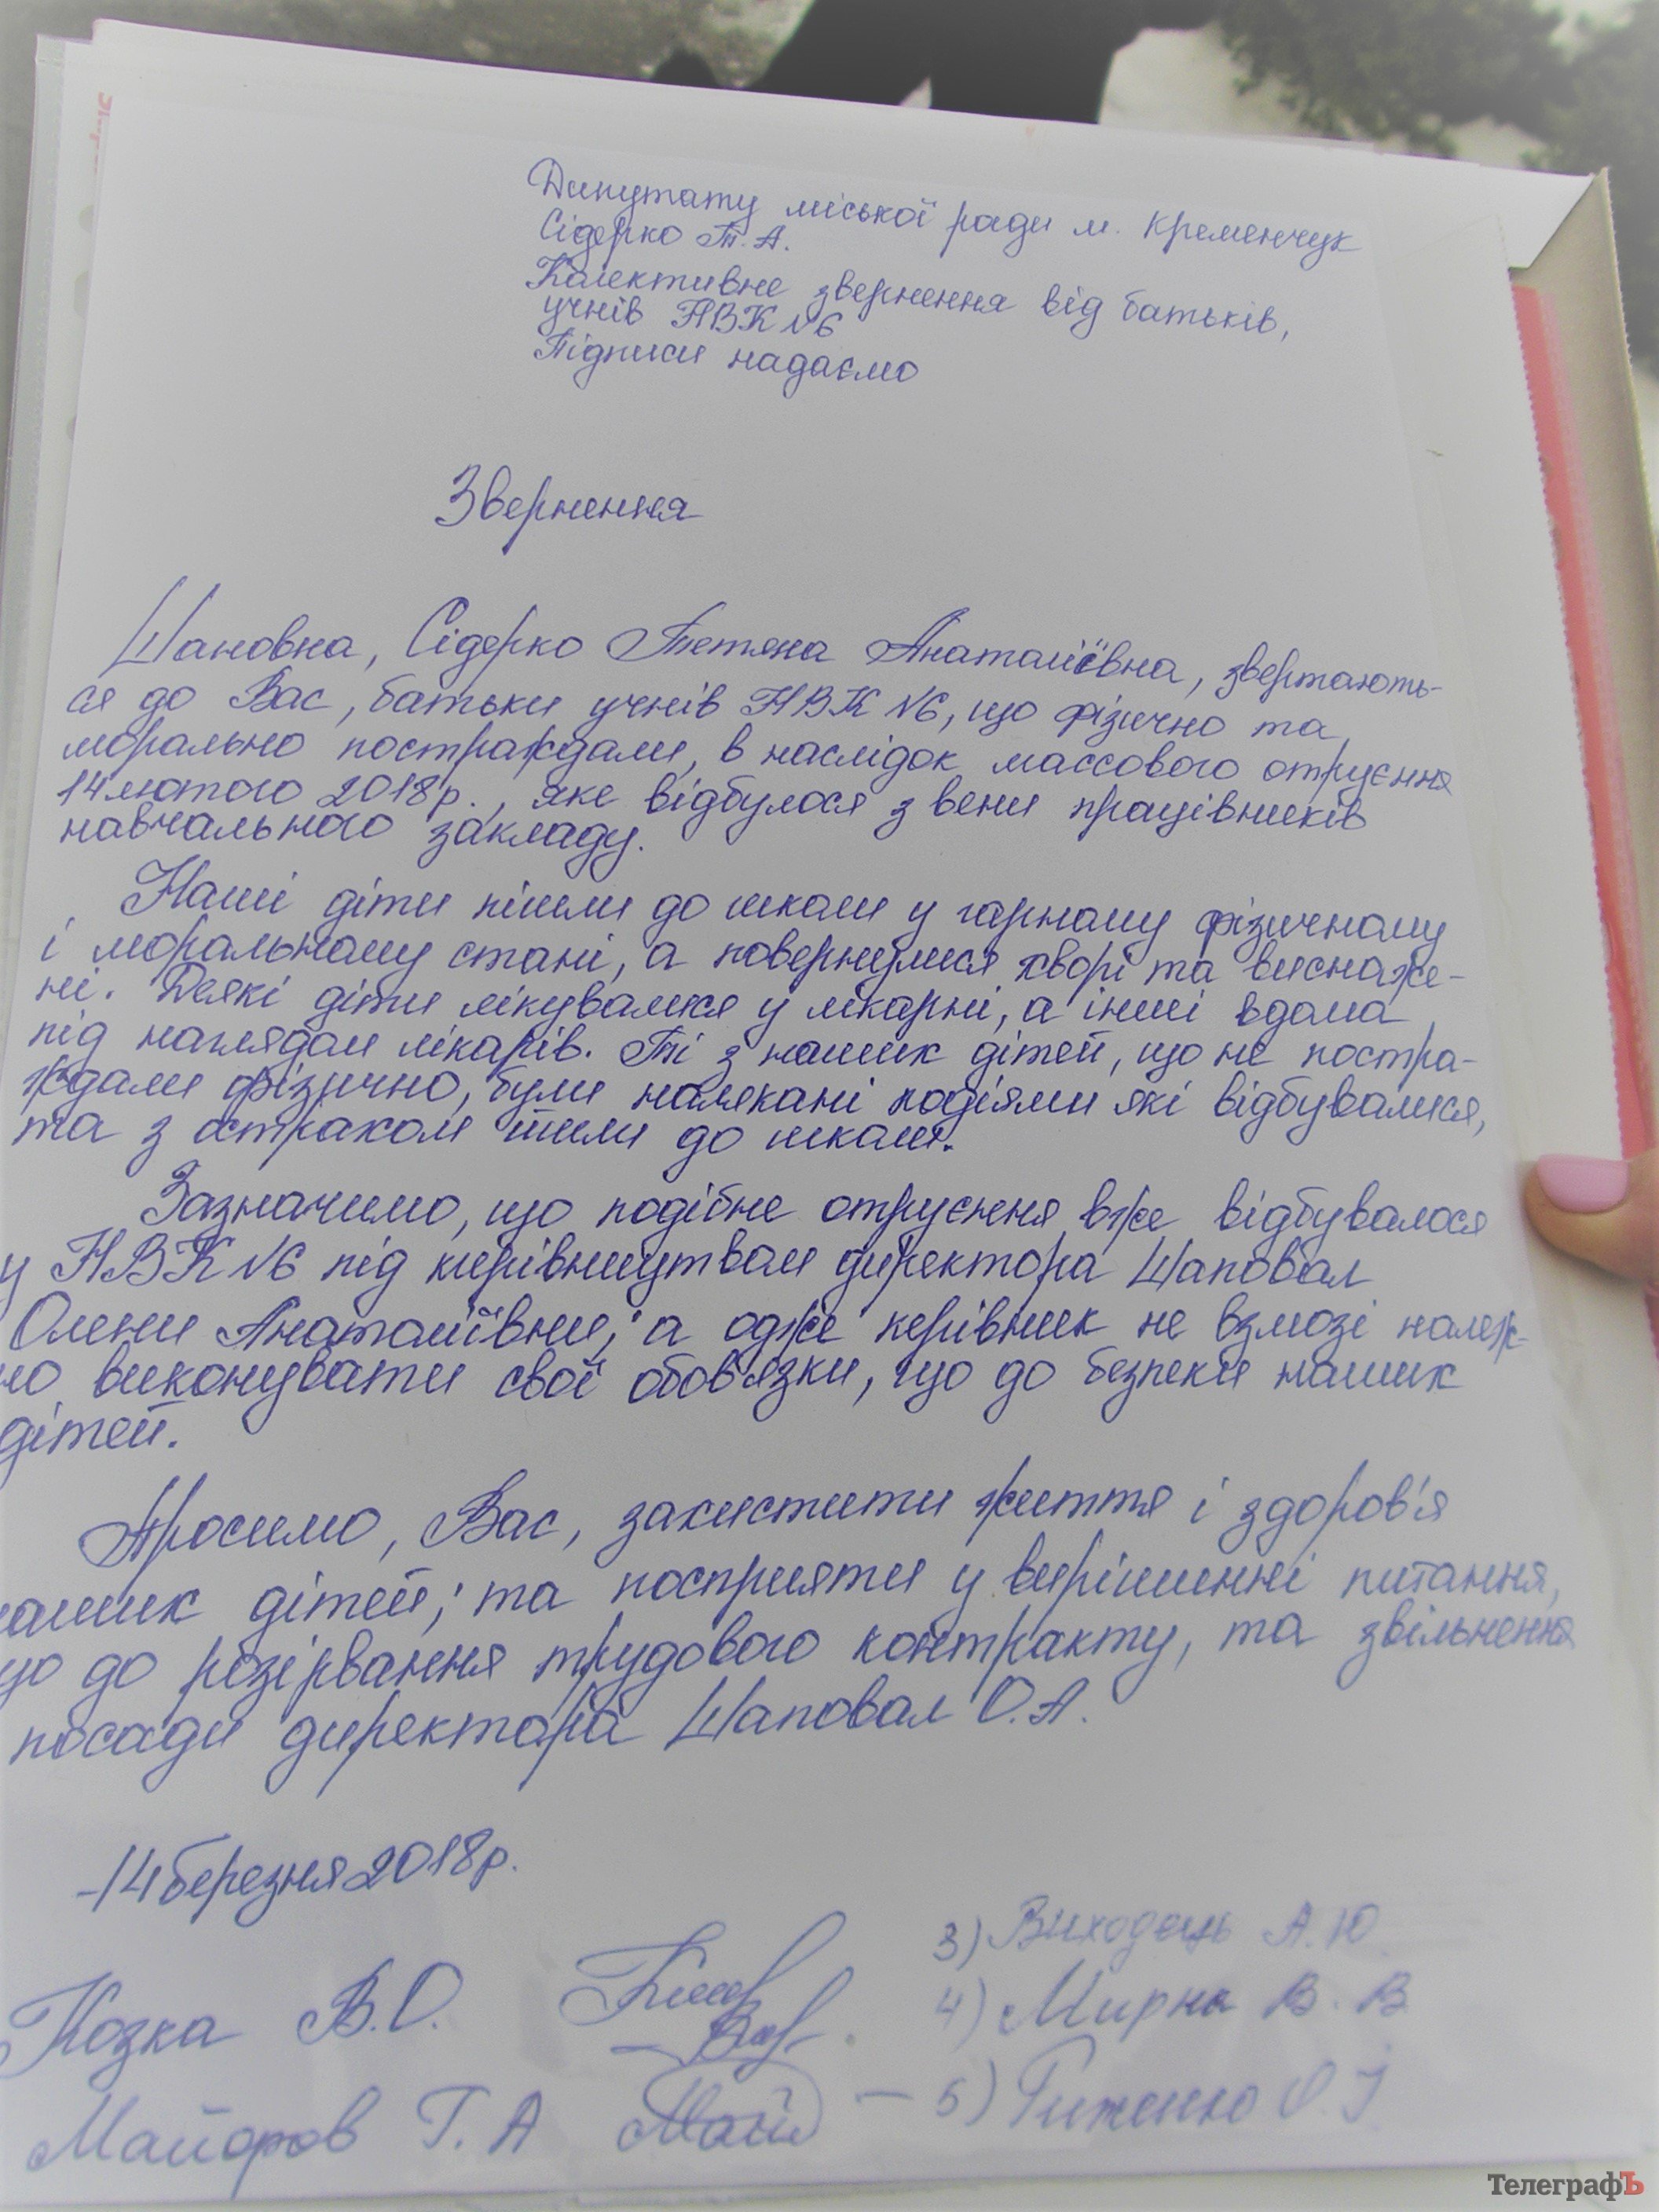 Динутату міської ради м. Кременчук
Сідерко Т. А.
Колективне звернення від батьків,
учнів НВК №6
Підписи надаємо
Звернення
Шановна, Сідерко Тетяна Анатоліївна, звертають-
ся до Вас, батьки учнів НВК №6, що фізично та
морально постраждали, в наслідок массового отруєння
14 лютого 2018р., яке відбулося з вени працівників
навчального закладу.
Наші діти пішли до школи у гарному фізичному
і моральному стані, а повернулися хворі та виснаже-
ні. Деякі діти лікувалися у лікарні, а інші вдома
під наглядом лікарів. Ті з наших дітей, що не постра-
ждали фізично, були налякані подіями які відбувалися,
та з острахом йшли до школи.
Зазначимо, що подібне отруєння вже відбувалося
у НВК №6 під керівництвом директора Шаповал
Олени Анатоліївни; а одже керівник не взмозі належ-
но виконувати свої обов'язки, що до безпеки наших
дітей.
Просимо, Вас, захистити життя і здоров'я
наших дітей; та посприяти у вирішинні питання,
що до розірвання трудового контракту, та звільнення
посади директора Шаповал О.А.
14 березня 2018р.
Козка В.О.
3) Виходець А.Ю.
4) Мирна В. В.
Майоров Г. А
5)
ТелеграфЪ